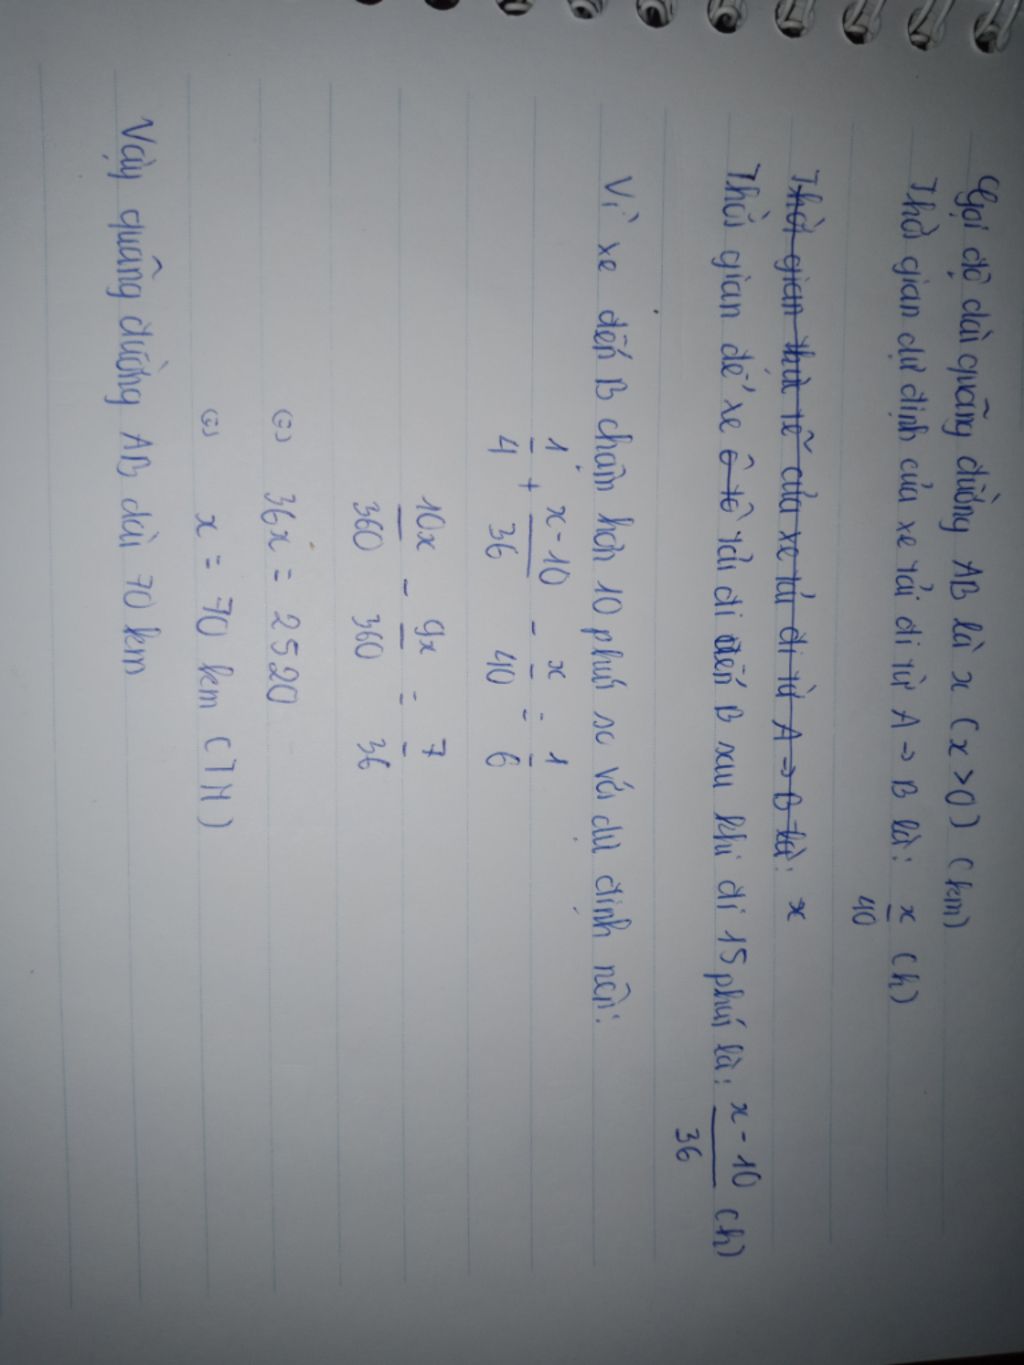 Gọi độ dài quãng đường AB là x (x>0) (km)
Thời gian dự định của xe tải đi từ A → B là: x/40 (h)
Thời gian thực tế của xe tải đi từ A → B là: x
Thời gian để xe ô tô tải đi đến B sau khi đi 15 phút là: x-10/36 (h)
Vì xe đến B chậm hơn 10 phút so với dự định nên:
1/4 + x-10/36 - x/40 = 1/6
10x/360 - 9x/360 = 7/36
(=) 36x = 2520
(=) x = 70 km (TM)
Vậy quãng đường AB dài 70 km